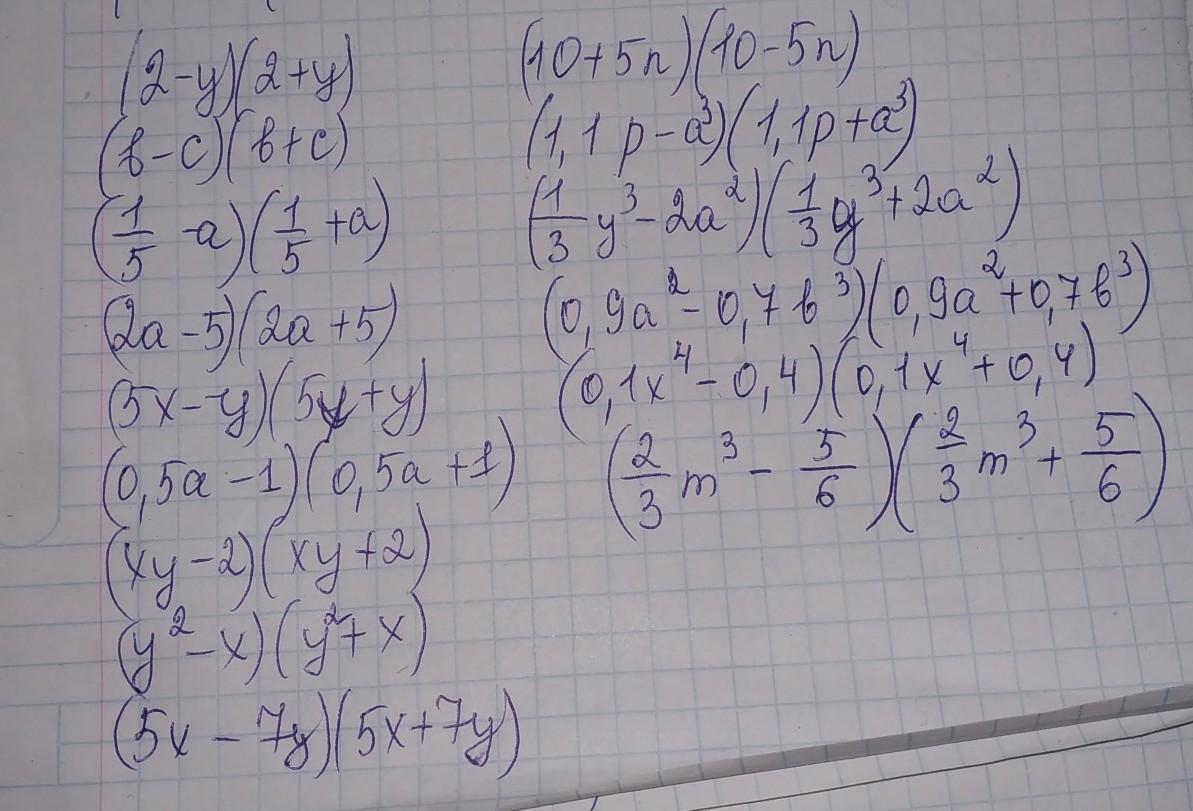 (2-y)(2+y)
(в-c)(в+c)
(1/5 -a)(1/5 +a)
(2a-5)(2a+5)
(5x-y)(5x+y)
(0,5a-1)(0,5a+1)
(xy-2)(xy+2)
(y²-x)(y²+x)
(5x-7y)(5x+7y)
(10+5n)(10-5n)
(1,1p-a³)(1,1p+a³)
(1/3 y³-2a²)(1/3 y³+2a²)
(0,9a²-0,7в³)(0,9a²+0,7в³)
(0,1x⁴-0,4)(0,1x⁴+0,4)
(2/3 m³ - 5/6)(2/3 m³ + 5/6)